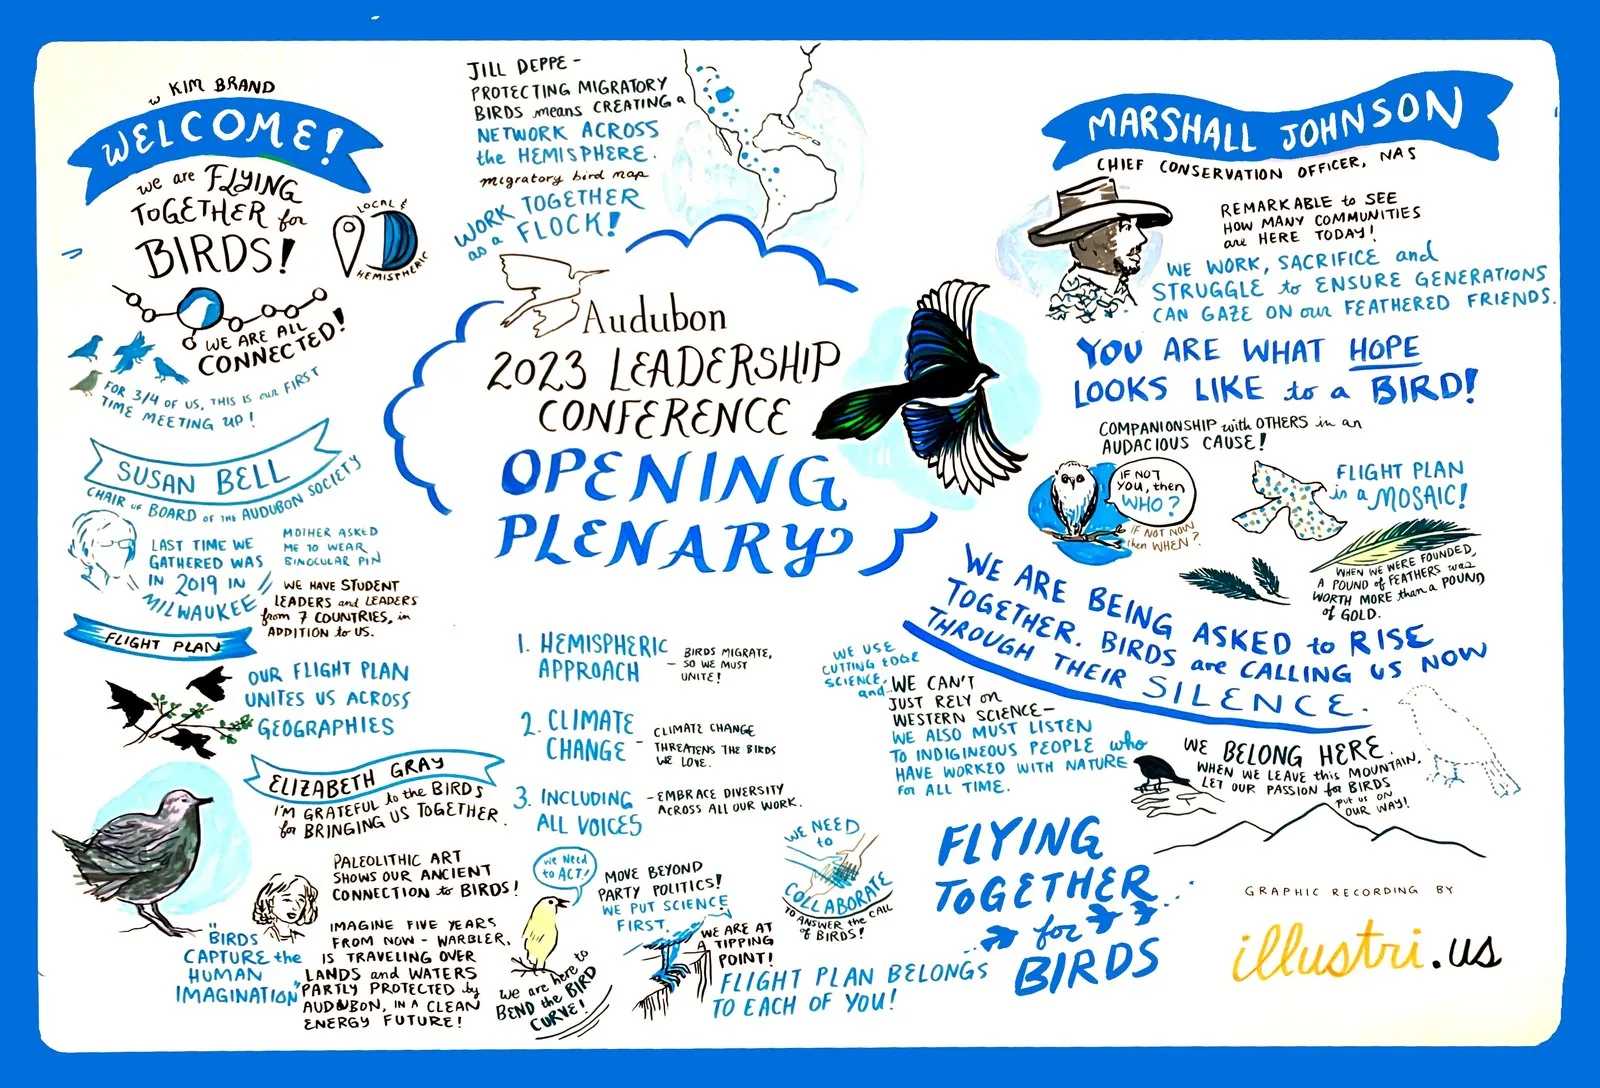 w KIM BRAND
WELCOME!
we are FLYING
TOGETHER for
BIRDS!
LOCAL &
HEMISPHERIC
WE ARE ALL
CONNECTED!
FOR 3/4 OF US, THIS is our FIRST
TIME MEETING UP!
SUSAN BELL
CHAIR of BOARD of THE AUDUBON SOCIETY
LAST TIME WE
GATHERED WAS
IN 2019 IN
MILWAUKEE
MOTHER ASKED
ME TO WEAR
BINOCULAR PIN
WE HAVE STUDENT
LEADERS and LEADERS
from 7 COUNTRIES, in
ADDITION to US.
FLIGHT PLAN
OUR FLIGHT PLAN
UNITES US ACROSS
GEOGRAPHIES
ELIZABETH GRAY
I'M GRATEFUL to the BIRDS
for BRINGING US TOGETHER.
PALEOLITHIC ART
SHOWS OUR ANCIENT
CONNECTION to BIRDS!
"BIRDS
CAPTURE the
HUMAN
IMAGINATION"
IMAGINE FIVE YEARS
FROM NOW - WARBLER,
IS TRAVELING OVER
LANDS and WATERS
PARTLY PROTECTED by
AUDUBON, IN A CLEAN
ENERGY FUTURE!
JILL DEPPE -
PROTECTING MIGRATORY
BIRDS means CREATING a
NETWORK ACROSS
the HEMISPHERE.
migratory bird map
WORK TOGETHER
as a FLOCK!
Audubon
2023 LEADERSHIP
CONFERENCE
OPENING
PLENARY
1. HEMISPHERIC
APPROACH
- BIRDS MIGRATE,
SO WE MUST
UNITE!
2. CLIMATE
CHANGE
- CLIMATE CHANGE
THREATENS THE BIRDS
WE LOVE.
3. INCLUDING
ALL VOICES
- EMBRACE DIVERSITY
ACROSS ALL OUR WORK.
we Need
to ACT!
we are here to
BEND the BIRD
CURVE!
MOVE BEYOND
PARTY POLITICS!
WE PUT SCIENCE
FIRST.
WE ARE AT
A TIPPING
POINT!
WE NEED
to
COLLABORATE
TO ANSWER the CALL
of BIRDS!
FLIGHT PLAN BELONGS
TO EACH OF YOU!
WE USE
CUTTING EDGE
SCIENCE,
and
WE CAN'T
JUST RELY on
WESTERN SCIENCE-
WE ALSO MUST LISTEN
TO INDIGINEOUS PEOPLE who
HAVE WORKED WITH NATURE
for ALL TIME.
MARSHALL JOHNSON
CHIEF CONSERVATION OFFICER, NAS
REMARKABLE to SEE
HOW MANY COMMUNITIES
are HERE TODAY!
WE WORK, SACRIFICE and
STRUGGLE to ENSURE GENERATIONS
CAN GAZE ON our FEATHERED FRIENDS.
YOU ARE WHAT HOPE
LOOKS LIKE to a BIRD!
COMPANIONSHIP with OTHERS in an
AUDACIOUS CAUSE!
IF NOT
YOU, then
WHO?
IF NOT NOW
then WHEN?
FLIGHT PLAN
is a MOSAIC!
WHEN WE WERE FOUNDED,
A POUND of FEATHERS was
WORTH MORE than a POUND
of GOLD.
WE ARE BEING ASKED to RISE
TOGETHER. BIRDS are CALLING US NOW
THROUGH THEIR SILENCE.
WE BELONG HERE.
WHEN WE LEAVE this MOUNTAIN,
LET OUR PASSION for BIRDS
put us on
OUR WAY!
FLYING
TOGETHER
for
BIRDS
GRAPHIC RECORDING BY
illustri.us